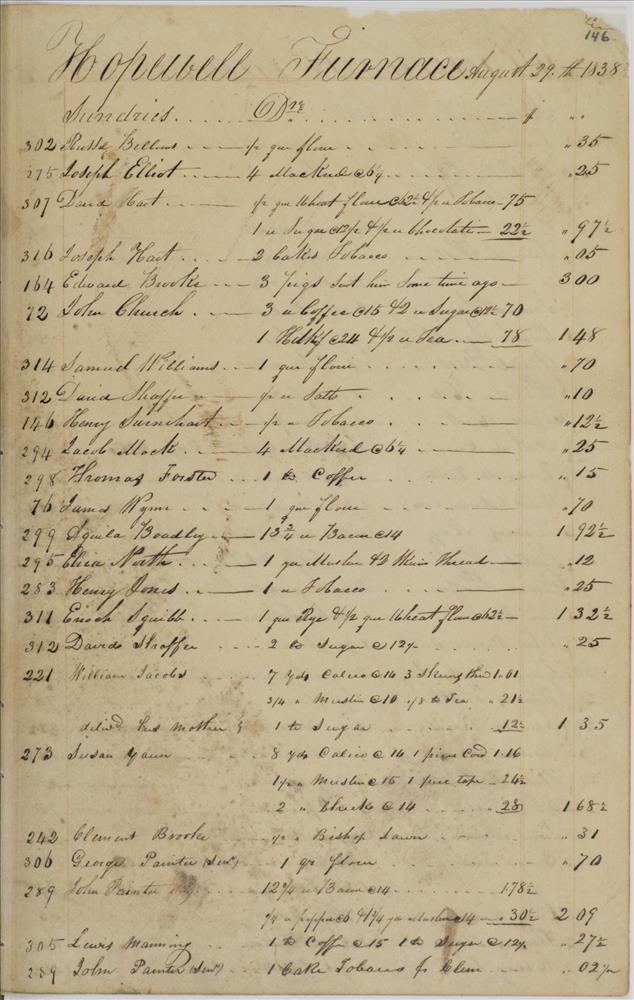 146
Hopewell Furnace August 29.th 1838
Sundries Drs $ "
302 Bellows ½ qur flour " 35
275 Joseph Elliot 4 Mackerel @ 6¼ " 25
307 David Hart ½ qur Wheat flour @ 62½ & ½ " Tobacco 75
1 " Sugar @ 12½ & ½ " Chocolate 22½ " 97½
316 Joseph Hart 2 Cakes Tobacco " 05
164 Edward Brooke 3 pigs sent him some time ago 3 00
72 John Church 3 " Coffee @ 15 & 2 " Sugar @ 12½ 70
1 Hdkf @ 24 & ½ " Tea 78 1 48
314 Samuel Williams 1 qur flour " 70
312 David Shaffer ½ " Salt " 10
146 Henry ½ " Tobacco " 12½
294 Jacob Mock 4 Mackerel @ 6¼ " 25
298 Thomas Forster 1 lb Coffee " 15
76 James Wynn 1 qur flour " 70
299 Aquila Boadley 13¾ " Bacon @ 14 1 92½
295 Eliza North 1 ya Muslin & 2 Skein Thread " 12
283 Henry Jones 1 " Tobacco " 25
311 Enoch Squibb 1 qur Rye & ½ qur Wheat flour @ 62½ 1 32½
312 David Shaffer 2 lb Sugar @ 12½ " 25
221 William Jacobs 7 yds Calico @ 14 3 Skeins thrd 1.01
3/4 " Muslin @ 10 1/8 lb Tea " 21½
delivd his mother } 1 lb Sugar " 12½ 1 35
273 Susan Yaun 8 yds Calico @ 14 1 piece Cord 1.16
1½ " Muslin @ 15 1 piece tape 24½
2 " Check @ 14 " 28 1 68½
242 Clement Brooke ½ " Bishop Lawn " 31
306 George Painter (Senr) 1 qr flour " 70
289 John Painter 12¾ " Bacon @ 14 1.78½
pepper & 1¾ ya Muslin @ 14 " 30½ 2 09
305 Lewis Manning 1 lb Coffee @ 15 1 lb Sugar @ 12½ " 27½
289 John Painter (Senr) 1 Cake Tobacco pr Clem " 02½